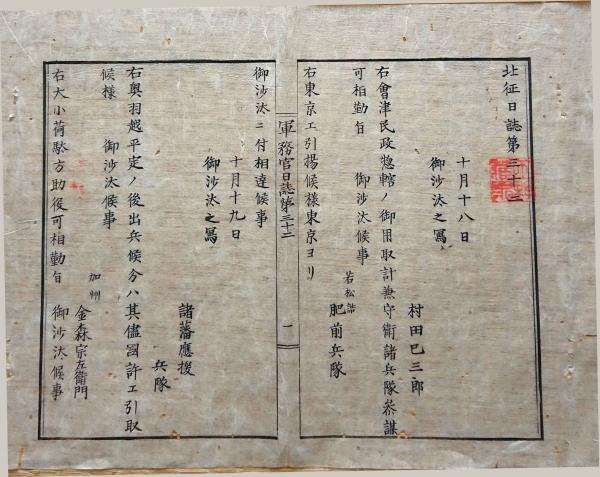 北征日誌第三十二
十月十八日
御沙汰之寫
村田巳三郎
右會津民政惣轄ノ御用取計兼守衛諸兵隊参謀
可相勤旨 御沙汰候事
若松詰
肥前兵隊
右東京エ引揚候様東京ヨリ
軍務官日誌第三十二
一
御沙汰ニ付相達候事
十月十九日
御沙汰之寫
諸藩應援
兵隊
右奥羽越平定ノ後出兵候分ハ其儘國許エ引取
候様 御沙汰候事
加州
金森宗左衛門
右大小荷駄方助役可相勤旨 御沙汰候事